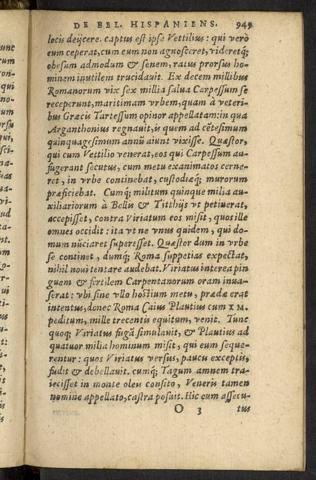 DE BEL. HISPANIENS. 949
locis deijcere. captus est ipse Vettilius: qui verò
eum ceperat, cum eum non agnosceret, videretq́;
obesum admodum & senem, ratus prorsus ho-
minem inutilem trucidauit. Ex decem millibus
Romanorum vix sex millia salua Carpessum se
receperunt, maritimam vrbem, quam à veteri-
bus Græcis Tartessum opinor appellatam: in qua
Arganthonius regnauit, is quem ad cētesimum
quinquagesimum annū aiunt vixisse. Quæstor,
qui cum Vettilio venerat, eos qui Carpessum au-
fugerant secutus, cum metu exanimatos cerne-
ret, in vrbe continebat, custodiaq́; murorum
præficiebat. Cumq́; militum quinque milia au-
xiliariorum à Bellis & Titthijs vt petiuerat,
accepisset, contra Viriatum eos misit, quos ille
omnes occidit: ita vt ne vnus quidem, qui do-
mum nūciaret superesset. Quæstor dum in vrbe
se continet, dumq́; Roma suppetias expectat,
nihil noui tentare audebat. Viriatus interea pin
guem & fertilem Carpentanorum oram inua-
serat: vbi sine vllo hostium metu, prædæ erat
intentus, donec Roma Caius Plautius cum X M.
peditum, mille trecentu equitum, venit. Tunc
quoq́; Viriatus fugā simulauit, & Plautius ad
quatuor milia hominum misit, qui eum seque-
rentur: quos Viriatus versus, paucis exceptis,
fudit & debellauit. cumq́; Tagum amnem tra-
iecisset in monte oleis consito, Veneris tamen
nomine appellato, castra posuit. Hic eum assecu-
O 3 tus